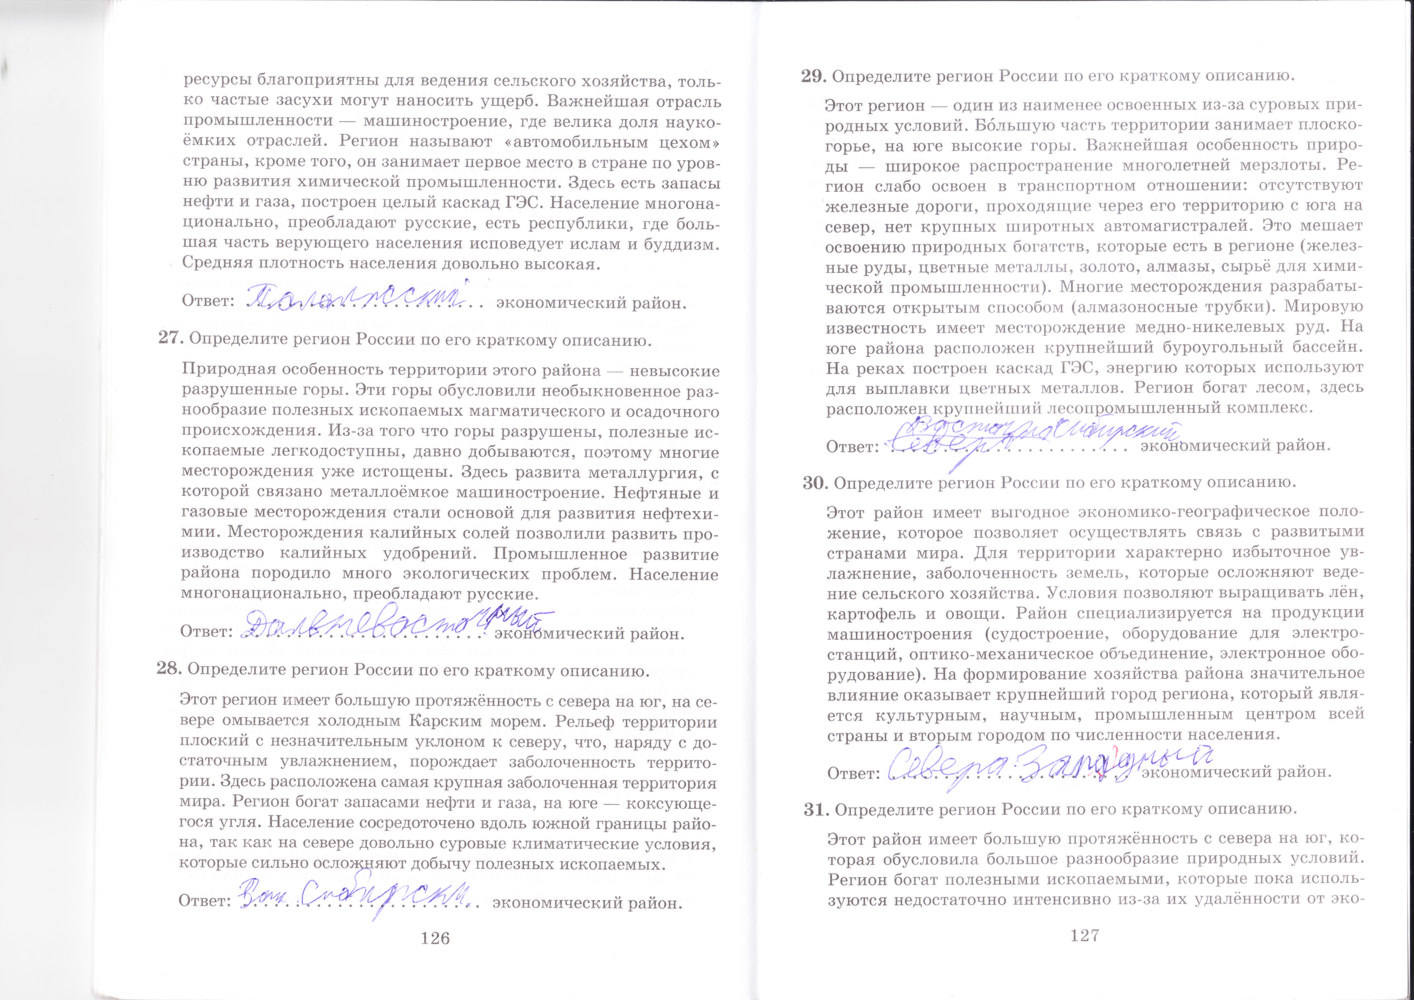 ресурсы благоприятны для ведения сельского хозяйства, толь-
ко частые засухи могут наносить ущерб. Важнейшая отрасль
промышленности — машиностроение, где велика доля науко-
ёмких отраслей. Регион называют «автомобильным цехом»
страны, кроме того, он занимает первое место в стране по уров-
ню развития химической промышленности. Здесь есть запасы
нефти и газа, построен целый каскад ГЭС. Население многона-
ционально, преобладают русские, есть республики, где боль-
шая часть верующего населения исповедует ислам и буддизм.
Средняя плотность населения довольно высокая.
Ответ: экономический район.
27. Определите регион России по его краткому описанию.
Природная особенность территории этого района — невысокие
разрушенные горы. Эти горы обусловили необыкновенное раз-
нообразие полезных ископаемых магматического и осадочного
происхождения. Из-за того что горы разрушены, полезные ис-
копаемые легкодоступны, давно добываются, поэтому многие
месторождения уже истощены. Здесь развита металлургия, с
которой связано металлоёмкое машиностроение. Нефтяные и
газовые месторождения стали основой для развития нефтехи-
мии. Месторождения калийных солей позволили развить про-
изводство калийных удобрений. Промышленное развитие
района породило много экологических проблем. Население
многонационально, преобладают русские.
Ответ: Дальневосточный экономический район.
28. Определите регион России по его краткому описанию.
Этот регион имеет большую протяжённость с севера на юг, на се-
вере омывается холодным Карским морем. Рельеф территории
плоский с незначительным уклоном к северу, что, наряду с до-
статочным увлажнением, порождает заболоченность террито-
рии. Здесь расположена самая крупная заболоченная территория
мира. Регион богат запасами нефти и газа, на юге — коксующе-
гося угля. Население сосредоточено вдоль южной границы райо-
на, так как на севере довольно суровые климатические условия,
которые сильно осложняют добычу полезных ископаемых.
Ответ: экономический район.
126
29. Определите регион России по его краткому описанию.
Этот регион — один из наименее освоенных из-за суровых при-
родных условий. Бо́льшую часть территории занимает плоско-
горье, на юге высокие горы. Важнейшая особенность приро-
ды — широкое распространение многолетней мерзлоты. Ре-
гион слабо освоен в транспортном отношении: отсутствуют
железные дороги, проходящие через его территорию с юга на
север, нет крупных широтных автомагистралей. Это мешает
освоению природных богатств, которые есть в регионе (желез-
ные руды, цветные металлы, золото, алмазы, сырьё для хими-
ческой промышленности). Многие месторождения разрабаты-
ваются открытым способом (алмазоносные трубки). Мировую
известность имеет месторождение медно-никелевых руд. На
юге района расположен крупнейший буроугольный бассейн.
На реках построен каскад ГЭС, энергию которых используют
для выплавки цветных металлов. Регион богат лесом, здесь
расположен крупнейший лесопромышленный комплекс.
Ответ: экономический район.
30. Определите регион России по его краткому описанию.
Этот район имеет выгодное экономико-географическое поло-
жение, которое позволяет осуществлять связь с развитыми
странами мира. Для территории характерно избыточное ув-
лажнение, заболоченность земель, которые осложняют веде-
ние сельского хозяйства. Условия позволяют выращивать лён,
картофель и овощи. Район специализируется на продукции
машиностроения (судостроение, оборудование для электро-
станций, оптико-механическое объединение, электронное обо-
рудование). На формирование хозяйства района значительное
влияние оказывает крупнейший город региона, который явля-
ется культурным, научным, промышленным центром всей
страны и вторым городом по численности населения.
Ответ: Севера-Западный экономический район.
31. Определите регион России по его краткому описанию.
Этот район имеет большую протяжённость с севера на юг, ко-
торая обусловила большое разнообразие природных условий.
Регион богат полезными ископаемыми, которые пока исполь-
зуются недостаточно интенсивно из-за их удалённости от эко-
127